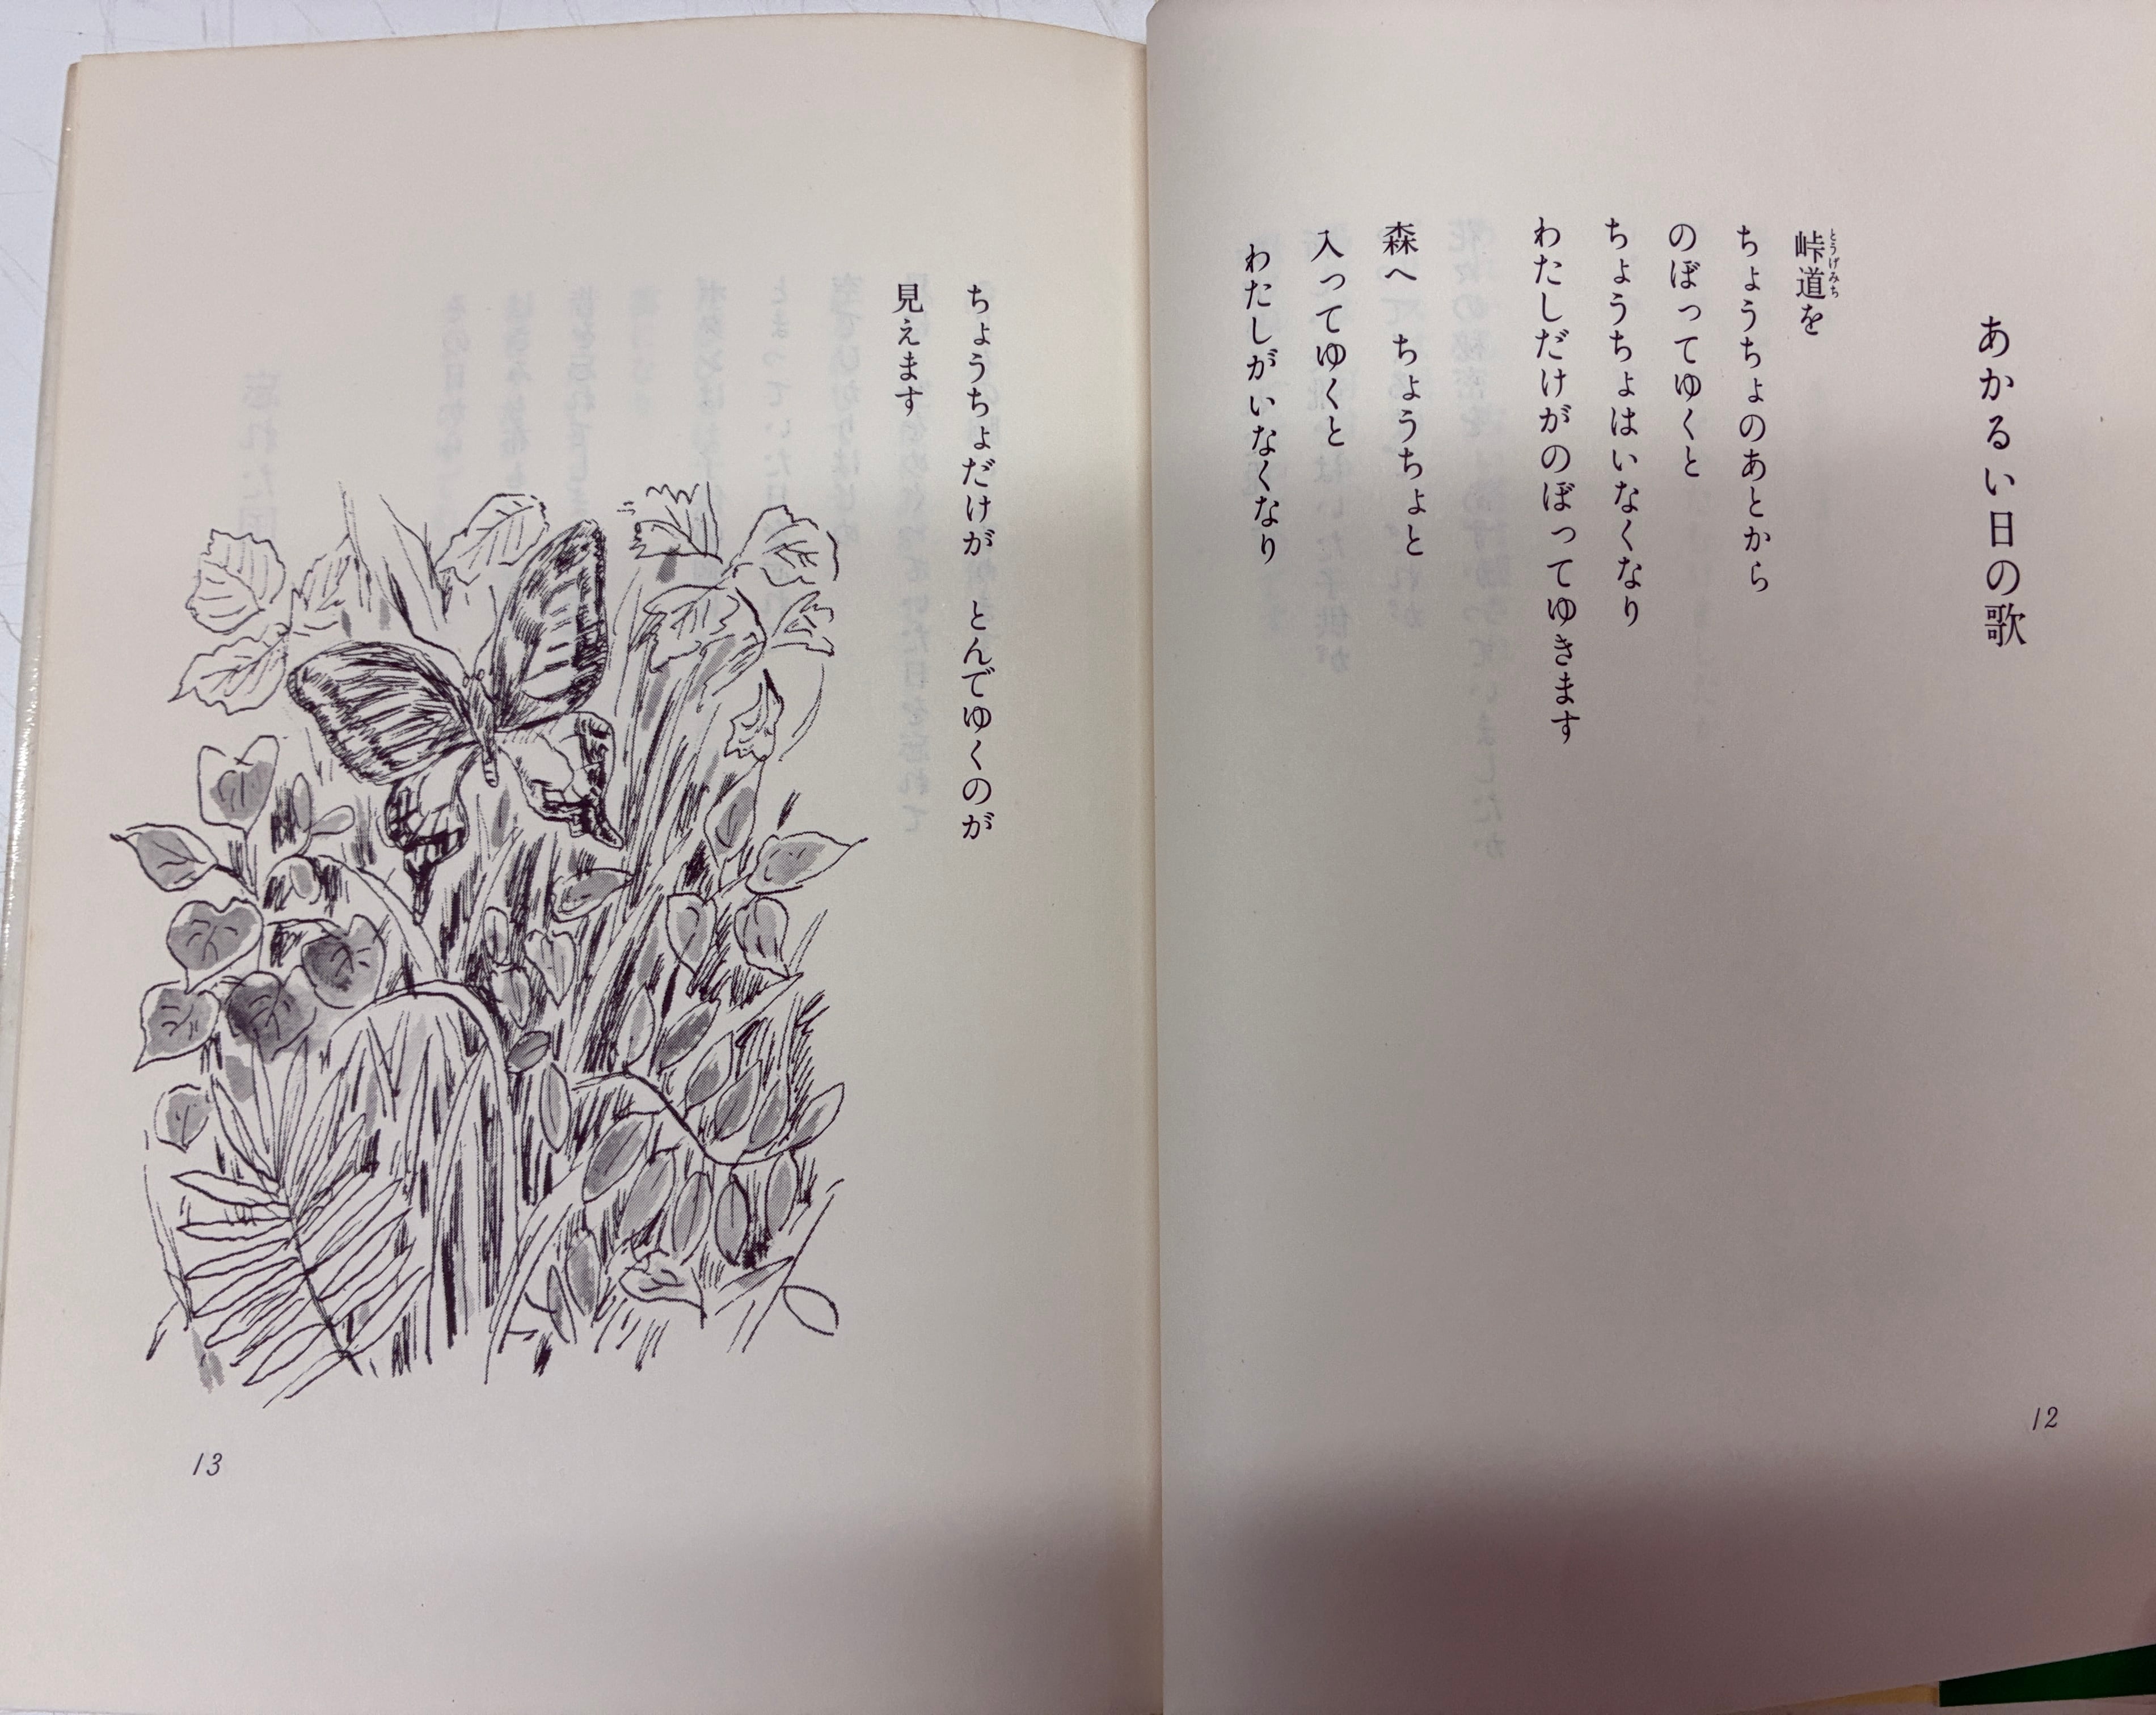 あかるい日の歌
峠道を
とうげみち
ちょうちょのあとから
のぼってゆくと
ちょうちょはいなくなり
わたしだけがのぼってゆきます
森へ　ちょうちょと
入ってゆくと
わたしがいなくなり
12
ちょうちょだけが　とんでゆくのが
見えます
13